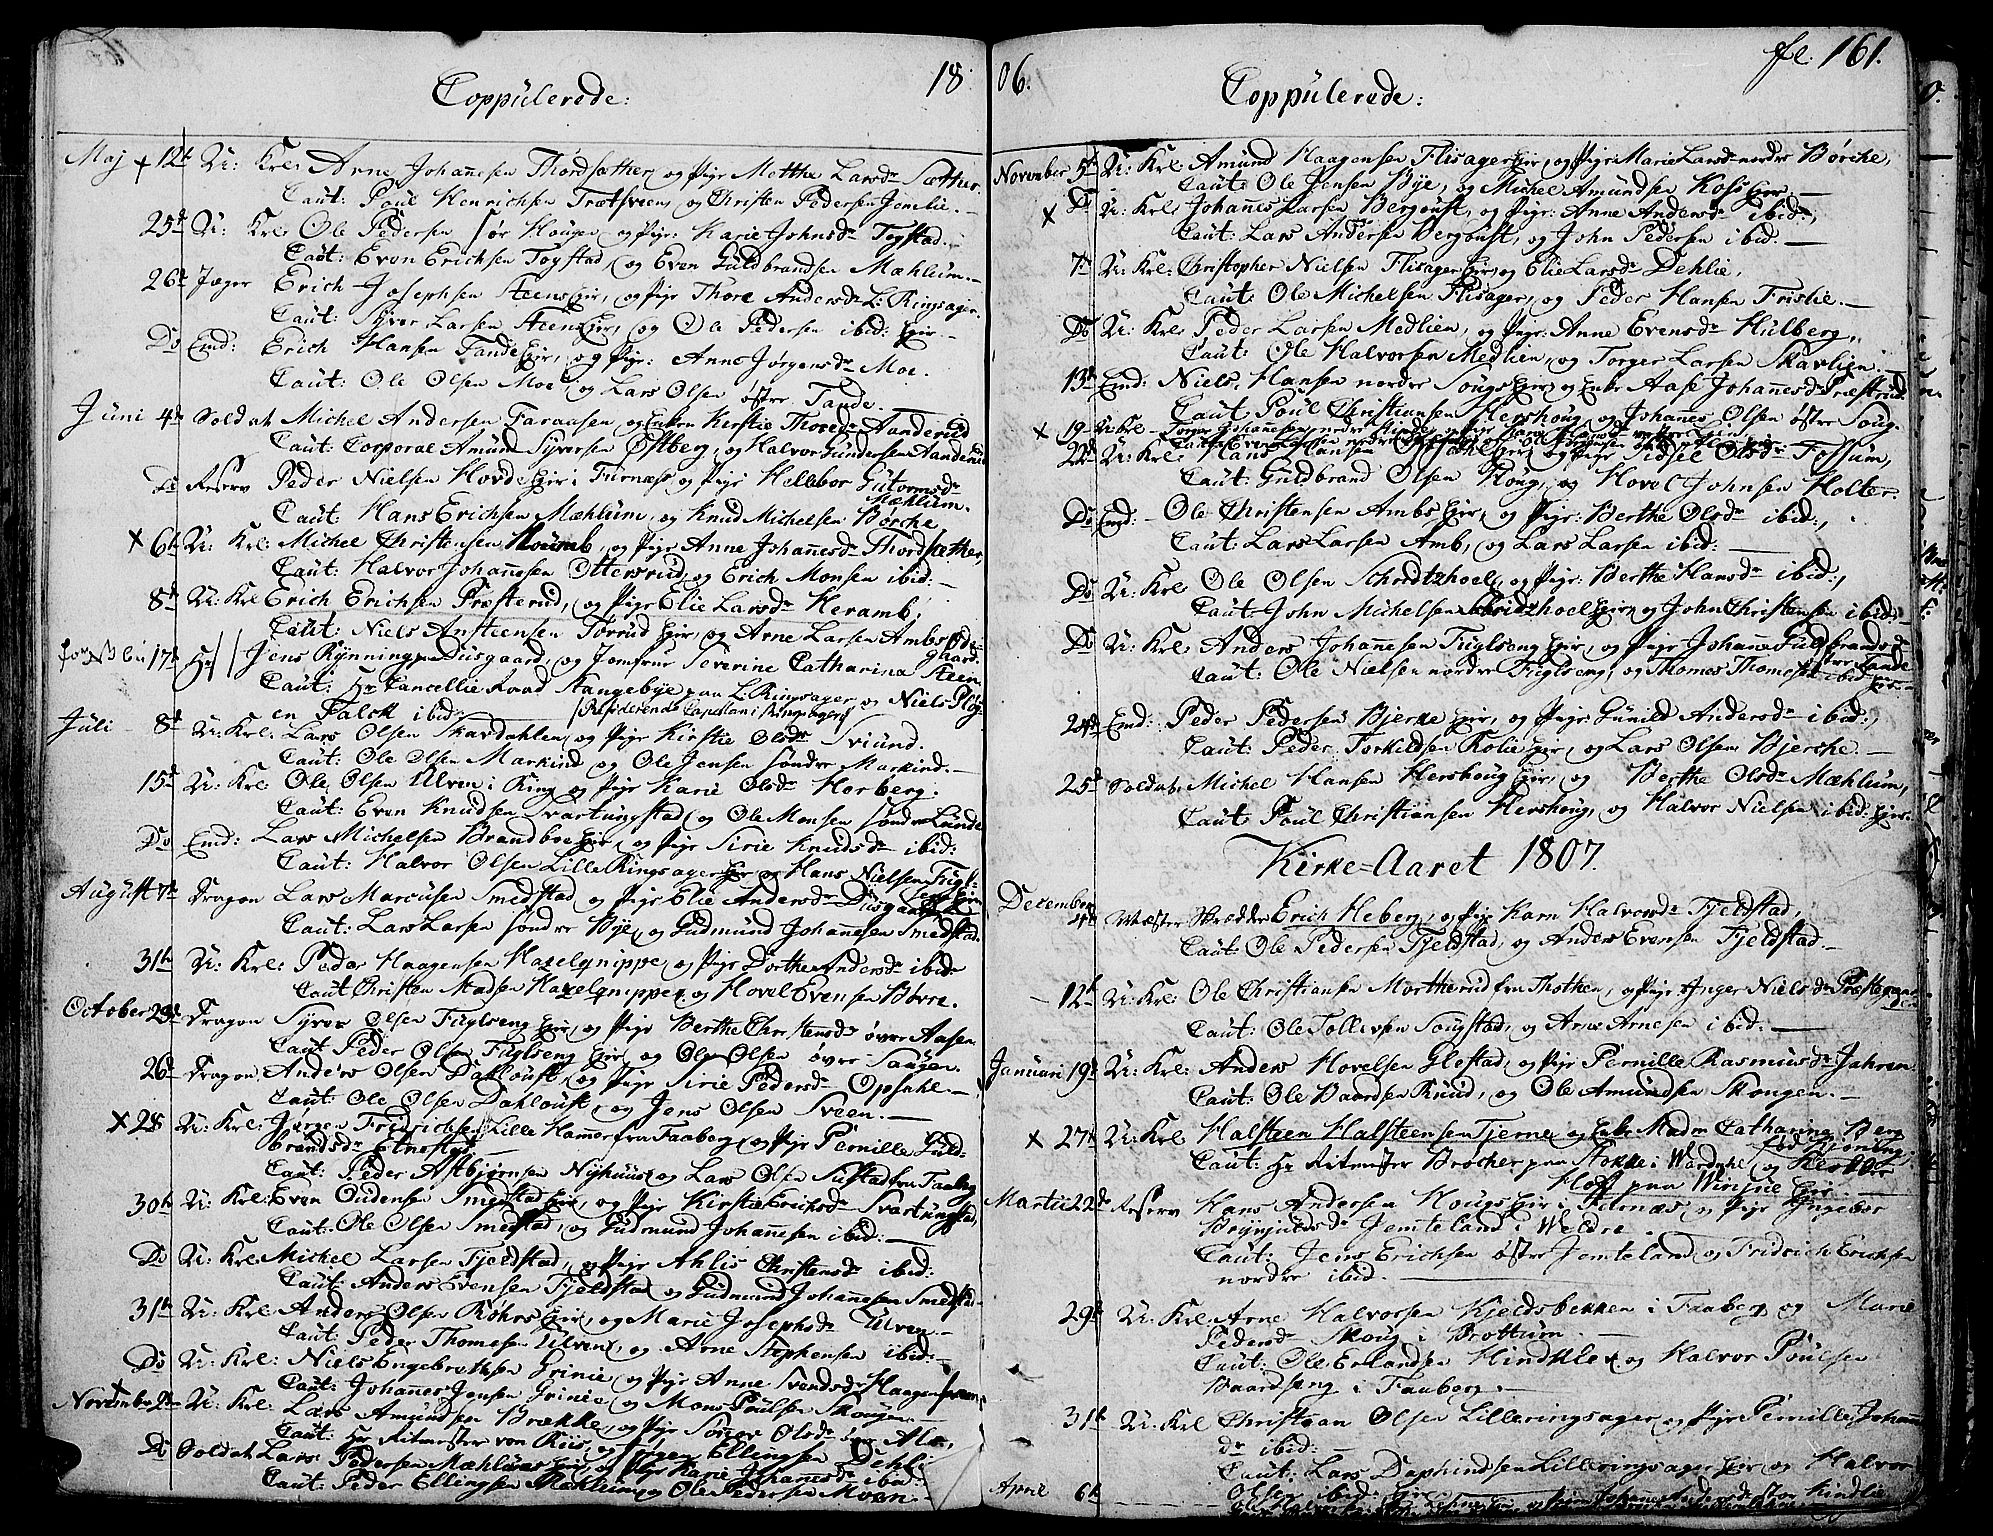 18
Coppulerede:
Maj 12t U: Krl: Arne Johañesen Thordsæther, og Pige Matthe Larsdr Sæther.
Caut: Poul Henrichsen Trætsveen, og Christen Pedersen Jemlie.
25d U: Krl: Ole Pedersen Sør Hougen, og Pige: Karie Johnsdr Togstad.
Caut: Even Erichsen Togstad, og Even Guldbrandsen Mæhlum.
26d Jæger Erich Josephsen Steens Eier, og Pige Thore Andersdr L: Ringsager.
Caut: Syver Larsen Steens Eier, og Ole Pedersen ibid: Eier.
Do Emd: Erich Hansen Tande Eier, og Pige: Anne Jørgensdr Moe.
Caut: Ole Olsen Moe, og Lars Olsen østre Tande.
Juni 4de Soldat Michel Andersen Faraasen og Enken Kirstie Thoresdr Aanderud
Caut: Corporal Amund Syversen Østberg, og Halvor Gundersen Aanderud
Do Reserv Peder Nielsen Horde Eier i Furnæs og Pige Hellebor Gutormsdr
Mæhlum.
Caut: Hans Erichsen Mæhlum, og Knud Michelsen Børche,
6t U: Krl: Michel Christensen, og Pige Anne Johañesdr Thordsæther,
Caut: Halvor Johañesen Ottersrud, og Erich Monsen ibid:
8d U: Krl Erich Erichsen Præsterud, og Pige Elie Larsdr Heramb,
Caut: Niels Ansteensen Torud Eier, og Arne Larsen Ambs Øde-
gaard.
17d Hr Jens Rynning paa Dusgaard, og Jomfrue Severine Catharina Steen
Caut: Hr Cancellie Raad Stangebye paa L: Ringsager og Niels Plog
en Falck ibid: Residerende Capelan i Ringsager
Juli 8d U: Krl: Lars Olsen Skardahlen, og Pige Kirstie Olsdr Sviund.
Caut: Ole Olsen Markind, og Ole Jensen søndre Markind.
15d U: Krl: Ole Olsen Ulven i Ring og Pige Karie Olsdr Horberg.
Caut: Even Knudsen Svartungstad, og Ole Monsen søndre Lunde
Do Emd: Lars Michelsen Brandboe Eier, og Pige Sirie Knudsdr ibid:
Caut: Halvor Olsen Lille Ringsager Eier og Hans Nielsen Fugl-
August 7de Dragon Lars Marcusen Smedstad, og Pige Elie Andersdr Dusgaard
Caut: Lars Larsen søndre Bye, og Gudmund Johañesen Smedstad.
31te U: Krl: Peder Haagensen Hazelqnippe, og Pige Dorthe Andersdr ibid:
Caut Christen Madsen Hazelqnippe, og Hovel Evensen Børre.
October 23d Dragon Syver Olsen Fuglseng Eier, og Pige Berthe Christensdr øvre Aasen
Caut Peder Olsen Fuglseng Eier og Ole Olsen øvre Saugen.
26d Dragon Anders Olsen Dahloust, og Pige Sirie Pedersdr Opsahl.
Caut: Ole Olsen Dahloust, og Jens Olsen Sveen.
28 U: Krl: Jørgen Fridrichsen Lille Hammer fra Faaberg, og Pige Pernille Guld-
brandsdr Etnestad
Caut: Peder Astbjørnsen Nyhuus, og Lars Olsen Sustad fra Faaberg
30te U: Krl: Even Oudensen Smedstad Eier, og Pige Kirstie Erichsdr Svartungstad,
Caut: Ole Olsen Smedstad, og Gudmund Johañesen ibid:
Do U: Krl: Michel Larsen Fjeldstad, og Pige Ahlis Christensdr ibid:
Caut: Anders Evensen Fjeldstad, og Gudmund Johañesen Smedstad.
31te U: Krl: Anders Olsen Røhrs Eier, og Marie Josephsdr Ulven.
Caut: Peder Thomesen Ulven, og Arne Stephensen ibid:
Do U: Krl: Niels Engebretsen Grinie, og Pige Anne Svendsdr Haagensveen
Caut: Johannes Jensen Grinie, og Mons Poulsen Skougen
November 2den U: Krl: Lars Amundsen Brække, og Pige Olsdr
Caut: Hr Ritmester von Kiis, og Jørgen Ellingsen Dehli
Do Soldat Lars Pedersen Mæhlums Eier, og Pige Karie Johañesdr ibid:
Caut: Peder Ellingsen Mæhlum, og Ole Pedersen Moen
06.
fl: 161.
Coppulerede:
November 5te U: Krl: Amund Haagensen Flisager Eier, og Pige Marie Larsdr nordre Børche,
Caut: Ole Jensen Bye, og Michel Amundsen Koss Eier.
Do U: Krl: Johañes Larsen Bergoust, og Pige: Anne Andersdr ibid:,
Caut: Lars Andersen Bergoust, og John Pedersen ibid:
7de U: Krl: Christopher Nielsen Flisager Eier, og Elie Larsdr Dehlie,
Caut: Ole Michelsen Flisager, og Peder Hansen Frislie.
Do U: Krl: Peder Larsen Medlien, og Pige: Anne Evensdr Hulberg,
Caut: Ole Halvorsen Medlien, og Torger Larsen Skavlien.
13de Emd: Niels Hansen nordre Sougs Eier, og Enke Aase Johañesdr Præstrud
Caut Poul Christiansen Hershoug, og Johañes Olsen østre Soug.
19 U: Krl
22d U: Krl: Hans Hansen Opsahl Eier, og Pige Idsil Olsdr Fossum,
Caut: Guldbrand Olsen Houg, og Hovel Johnsen Holter.
Do Emd: Ole Christensen Ambs Eier, og Pige: Berthe Olsdr ibid:,
Caut: Lars Larsen Amb, og Lars Larsen ibid:
Do U: Krl Ole Olsen Schredtzhoel, og Pige: Berthe Hansdr ibid:,
Caut John Michelsen Schridtzhoel Eier, og John Christensen ibid:
Do U: Krl: Anders Johañesen Fuglseng Eier, og Pige Johañe Guldbrandsdr
østre Tande
Caut: Ole Nielsen nordre Fuglseng, og Thomes Thomesen ibid: Eier.
24de Emd: Peder Pedersen Bjerke Eier, og Pige: Gunild Andersdr ibid:,
Caut: Peder Torkildsen Kolie Eier, og Lars Olsen Bjerche.
25d Soldat: Michel Hansen Hershoug Eier, og Berthe Olsdr Mæhlum,
Caut: Poul Christiansen Hershoug, og Halvor Nielsen ibid: Eier.
Kirke-Aaret 1807.
December 4de Mæster Skrædder Erich Heberg, og Pige Karn Halvorsdr Fjeldstad,
Caut: Ole Pedersen Fjeldstad, og Anders Evensen Fjeldstad.
12te U: Krl: Ole Christiansen Mortherud fra Thothen, og Pige: Inger Nielsdr Præstegaard
Caut: Ole Tollevsen Sougstad, og Arne Arnesen ibid:
Januari 19d U: Krl: Anders Hovelsen Glestad, og Pige Pernille Rasmusdr Jahren
Caut: Ole Baardsen Knud, og Ole Amundsen Skougen.
27de U: Krl Halsteen Halsteensen Tjerne, og Enke Madm Catharina Berg
fød Bjøning,
Caut: Hr Ritmester Brocher paa Stokke i Wardahl og Klokker
Hoff paa Wingie Eier
Martii 22de Reserv Hans Andersen Hougs Eier i Furnæs, og Pige Ingebor
Brynjulsdr Jemteland i Weldre.
Caut: Jens Erichsen østre Jemteland og Fridrich Erichsen
nordre ibid.
29de U: Krl: Arne Halvorsen Kjeldsbekken i Faaberg, og Marie
Pedersdr Skoug i Brottum.
Caut: Ole Erlandsen Hindklev, og Halvor Poulsen
Baardseng i Faaberg.
31te U: Krl Christian Olsen Lilleringsager, og Pige Pernille Johañes
dr ibid:
Caut: Lars Daphindsen Lilleringsager Eier, og Halvor
Olsen ibid: Eier.
April 6te